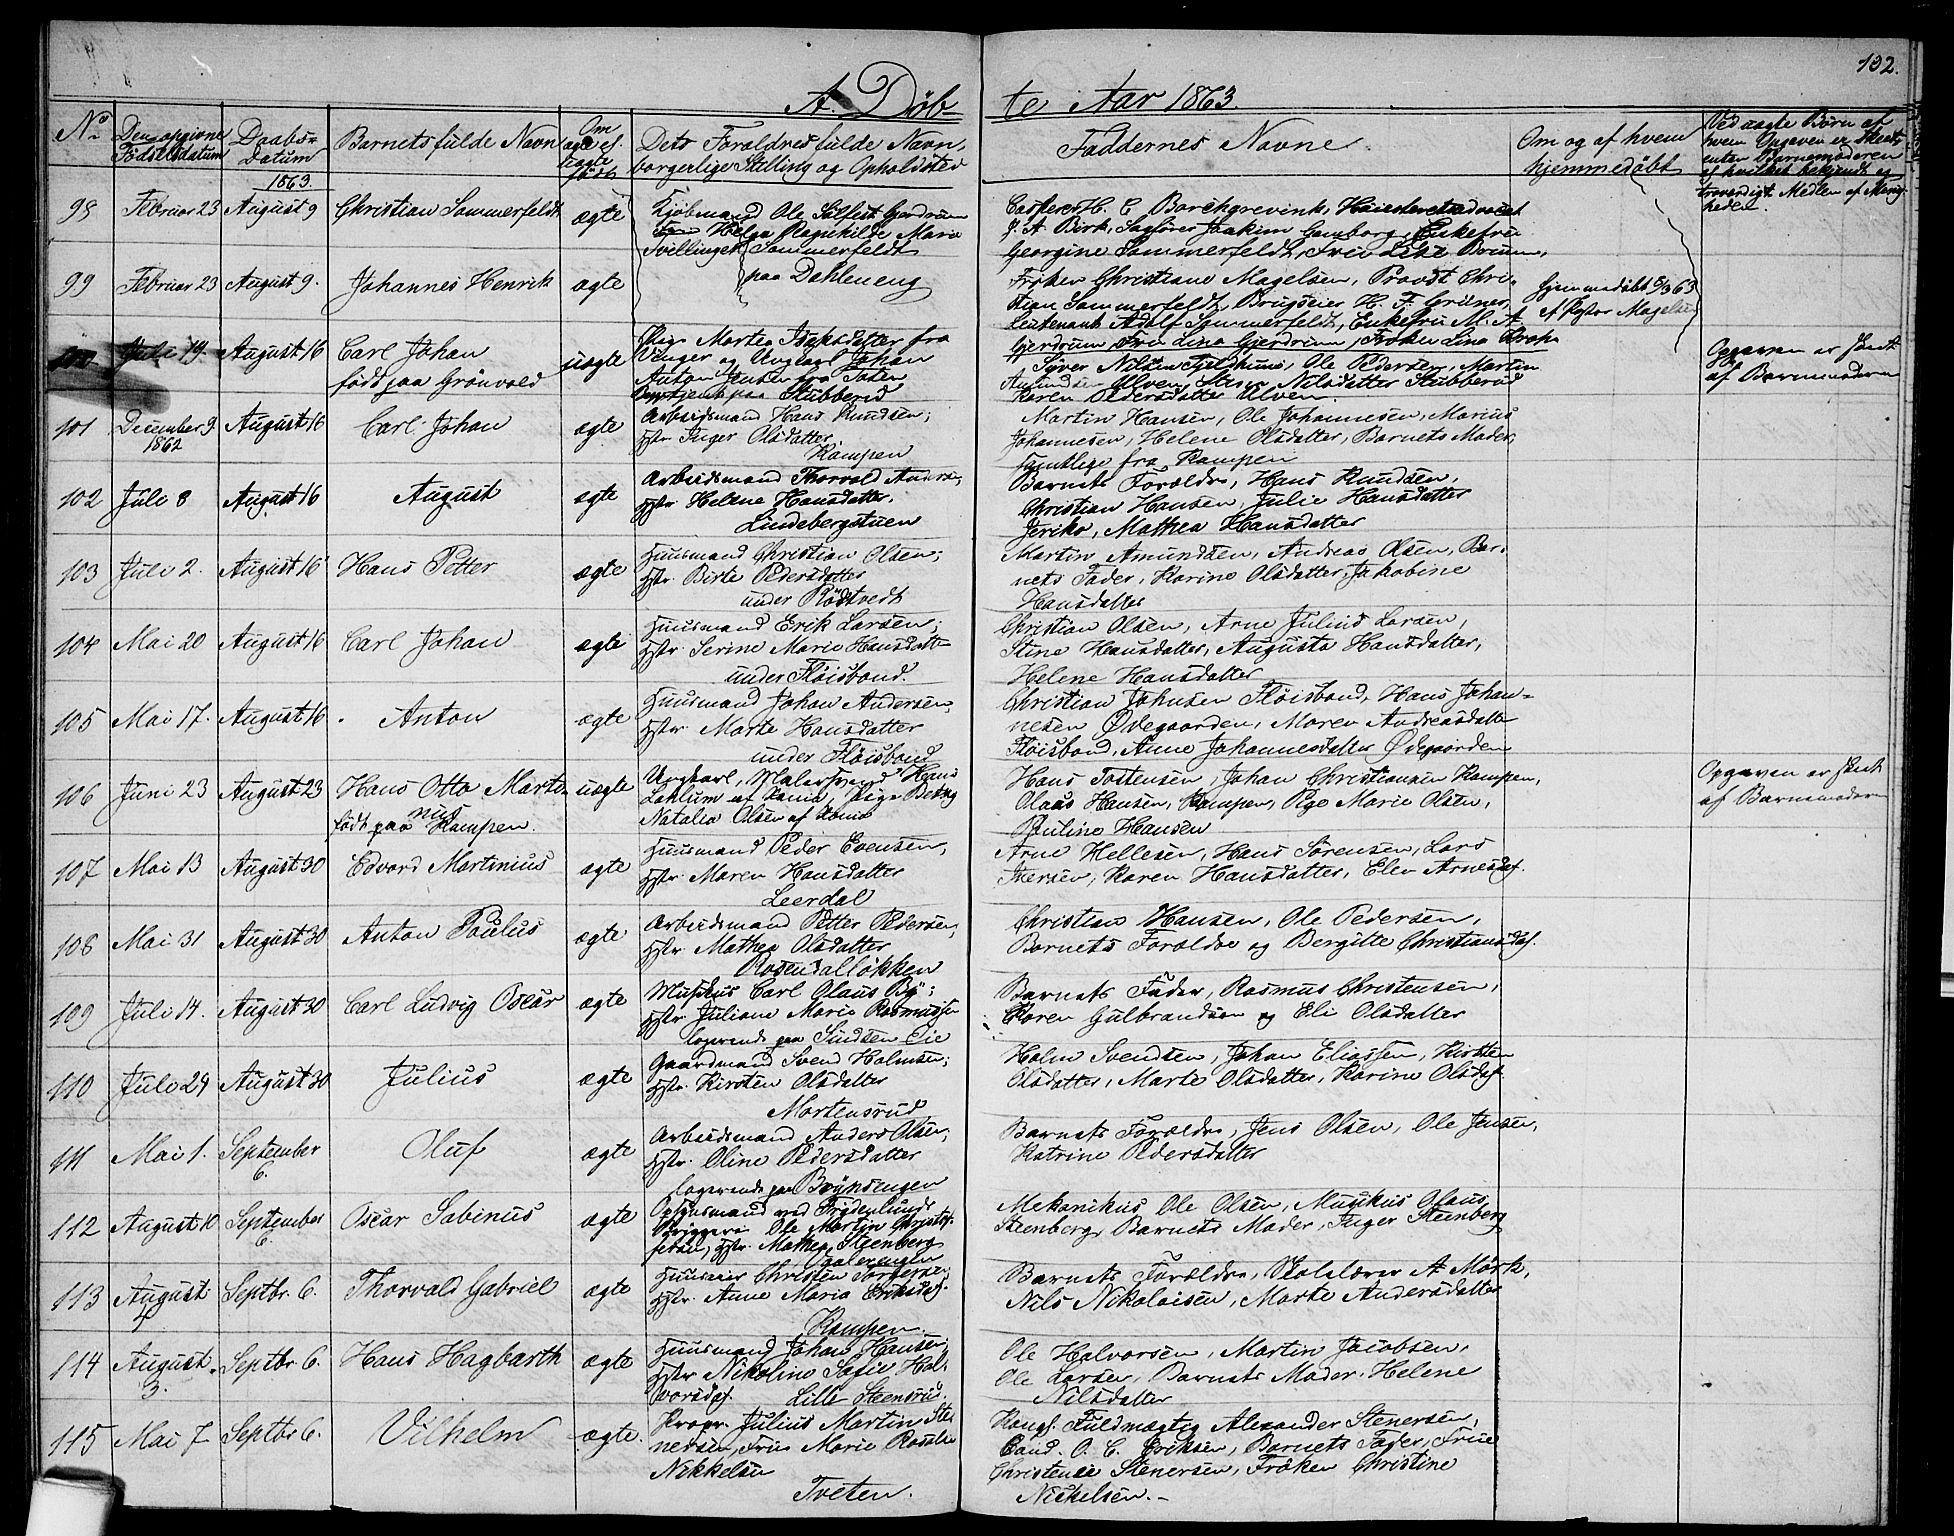 132.
A. Döbte Aar 1863.
No | Den opgivne Fødselsdatum | Daabs-Datum | Barnets fulde Navn | Om ægte el. uægte født | Dets Forældres fulde Navn, borgerlige Stilling og Opholdsted | Faddernes Navne. | Om og af hvem hjemmedøbt | Ved uægte Børn af hvem Opgaven er skeet, enten Barnemoderen el. hvilket bekjendt og troværdigt Medlem af Menigheden.
1863.
98 Februar 23 August 9 Christian Sommerfeldt ægte
Kjöbmand Ole Solfest Gjerdrum
Helga Ragnhilde Marie
Tvillinger Sommerfeldt
paa Dahleneng
H. C. Borchgrevink, Høiesteretsadvocat
J. A. Birk, Sagfører Joakim Gamborg, Enkefru
Georgine Sommerfeldt, Fru Lise
99 Februar 23 August 9. Johannes Henrik ægte
Frøken Christiane Magelsen, Provst Chri-
stian Sommerfeldt, Brugseier H. F. Grüner,
Leutenant Adolf Sommerfeldt, Enkefru M. A.
Gjerdrum, Fru Lina Gjerdrum, Frøken Lina
Hjemmedöbt 5/3 63
af Pastor Magelsen
100 Juli 19. August 16 Carl Johan
født paa Grönvold uægte
Pige Marthe fra
Vinger og Ungkarl Johan
Anton Jensen fra Toten
paa Stubberud
Syver Nilsen Ole Pedersen, Martin
Ulven, Nilsdatter Stubberud
Karen Pedersdatter Ulven.
Opgaven er skeet
af Barnemoderen
101 December 9. 1862 August 16 Carl Johan ægte
Arbeidsmand Hans Knudsen;
Hstr. Inger Olsdatter.
Kampen
Martin Hansen, Ole Johannesen, Marius
Johannesen, Helene Olsdatter, Barnets Moder,
samtlige fra Kampen
102 Juli 8 August 16 August ægte
Arbeidsmand Thorvald Andersen,
Hstr. Helene Hansdatter.
Lindebergstuen
Barnets Forældre, Hans Knudsen,
Christian Hansen, Julie Hansdatter
Jeriko, Mathea Hansdatter
103 Juli 2. August 16 Hans Petter ægte
Huusmand Christian Olsen;
Hstr. Birte Pedersdatter
under Rödtvedt
Martin Amundsen, Andreas Olsen, Bar-
nets Fader, Karine Olsdatter, Jakobine
Hansdatter
104 Mai 20 August 16 Carl Johan ægte
Huusmand Erik Larsen;
Hstr. Serine Marie Hansdatter
under Fløisbond.
Christian Olsen, Arne Julius Larsen,
Stine Hansdatter, Augusta Hansdatter,
Helene Hansdatter
105 Mai 17. August 16 Anton ægte
Huusmand Johan Andersen,
Hstr. Marte Hansdatter
under Fløisbond
Christian Johnsen Fløisbond, Hans Johan-
nesen Ødegaarden, Maren Andreasdatter
Fløisbond, Anne Johannesdatter Ødegaarden
106 Juni 23 August 23 Hans Otto Marti-
nus
født paa Kampen. uægte
Ungkarl, Malersvend Hans
af Xania, Pige
Natalia Olsen af Xania
Hans Tostensen, Johan Christiansen Kampen,
Olaus Hansen, Kampen, Pige Marie Olsen,
Pauline Hansen
Opgaven er skeet
af Barnemoderen
107 Mai 13 August 30 Edvard Martinius ægte
Huusmand Peder Evensen,
Hstr. Maren Hansdatter
Leerdal
Arne Hellesen, Hans Sørensen, Lars
Iversen, Karen Hansdatter, Elen Arnesdtf.
108 Mai 31 August 30 Anton Paulus ægte
Arbeidsmand Petter Pedersen,
Hstr Mathea Olsdatter
Rosendalløkken
Christian Hansen, Ole Pedersen,
Barnets Forældre og Bergitte Christiansdtf.
109 Juli 14. August 30 Carl Ludvig Oscar ægte
Musikus Carl Olaus By;
Hstr. Juliane Marie Rasmussen
logerende paa Sindsen Eie
Barnets Fader, Rasmus Christensen,
Karen Gulbrandsen og Eli Olsdatter
110 Juli 29 August 30 Julius ægte
Gaardmand Svend Holmsen;
Hstr. Kirsten Olsdatter
Mortensrud
Holm Svendsen, Johan Eliassen, Kirsten
Olsdatter, Marte Olsdatter, Karine Olsdtf.
111 Mai 1. September 6. Oluf ægte
Arbeidsmand Anders Olsen,
Hstr. Oline Pedersdatter
logerende paa Bryndsengen
Barnets Forældre, Jens Olsen, Ole Jensen,
Katrine Pedersdatter
112 August 10 September 6. Oscar Sabinus ægte
Opsynsmand ved Frydenlunds
Bryggeri Ole Martin Christof-
fersen, Hstr. Mathea Steenberg
Mekanikus Ole Olsen, Musikus Olaus
Steenberg, Barnets Moder, Inger Steenberg
113 August 4 Septbr. 6. Thorvald Gabriel ægte
Huuseier Christen
Hstr. Anne Maria Eriksdtf.
Kampen.
Barnets Forældre, Skolelærer A. Mörk,
Nils Nikolaisen, Marte Andersdatter
114 August 3. Septbr. 6. Hans Hagbarth ægte
Huusmand Johan Hansen,
Hstr Nikoline Sofie Hal-
vorsdtf. Lille Steensrud.
Ole Halvorsen, Martin Jacobsen,
Ole Larsen, Barnets Moder, Helene
Nilsdatter
115 Mai 7 Septbr 6. Vilhelm ægte.
Propr. Julius Martin Ste-
nersen, Frue Marie Rosalie
Nikkelsen
Tveten.
Kongl. Fuldmægtig Alexander Stenersen,
Cand. O. C. Eriksen, Barnets Fader, Frue
Christence Stenersen, Frøken Christine
Nickelsen.